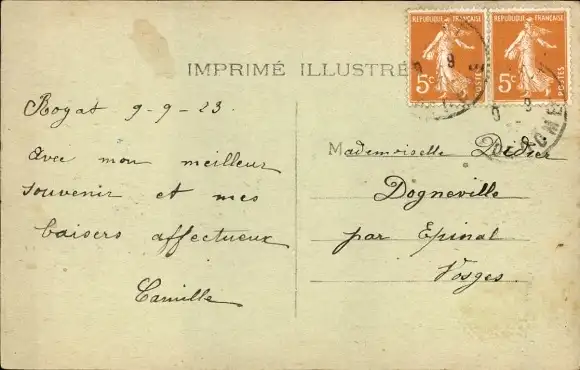 RÉPUBLIQUE FRANÇAISE RÉPUBLIQUE FRANÇAISE
5c POSTES 5c POSTES
IMPRIMÉ ILLUSTRÉ
Royat 9-9-23.
Avec mon meilleur
souvenir et mes
baisers affectueux
Camille
Mademoiselle Didier
Dogneville
par Epinal
Vosges.